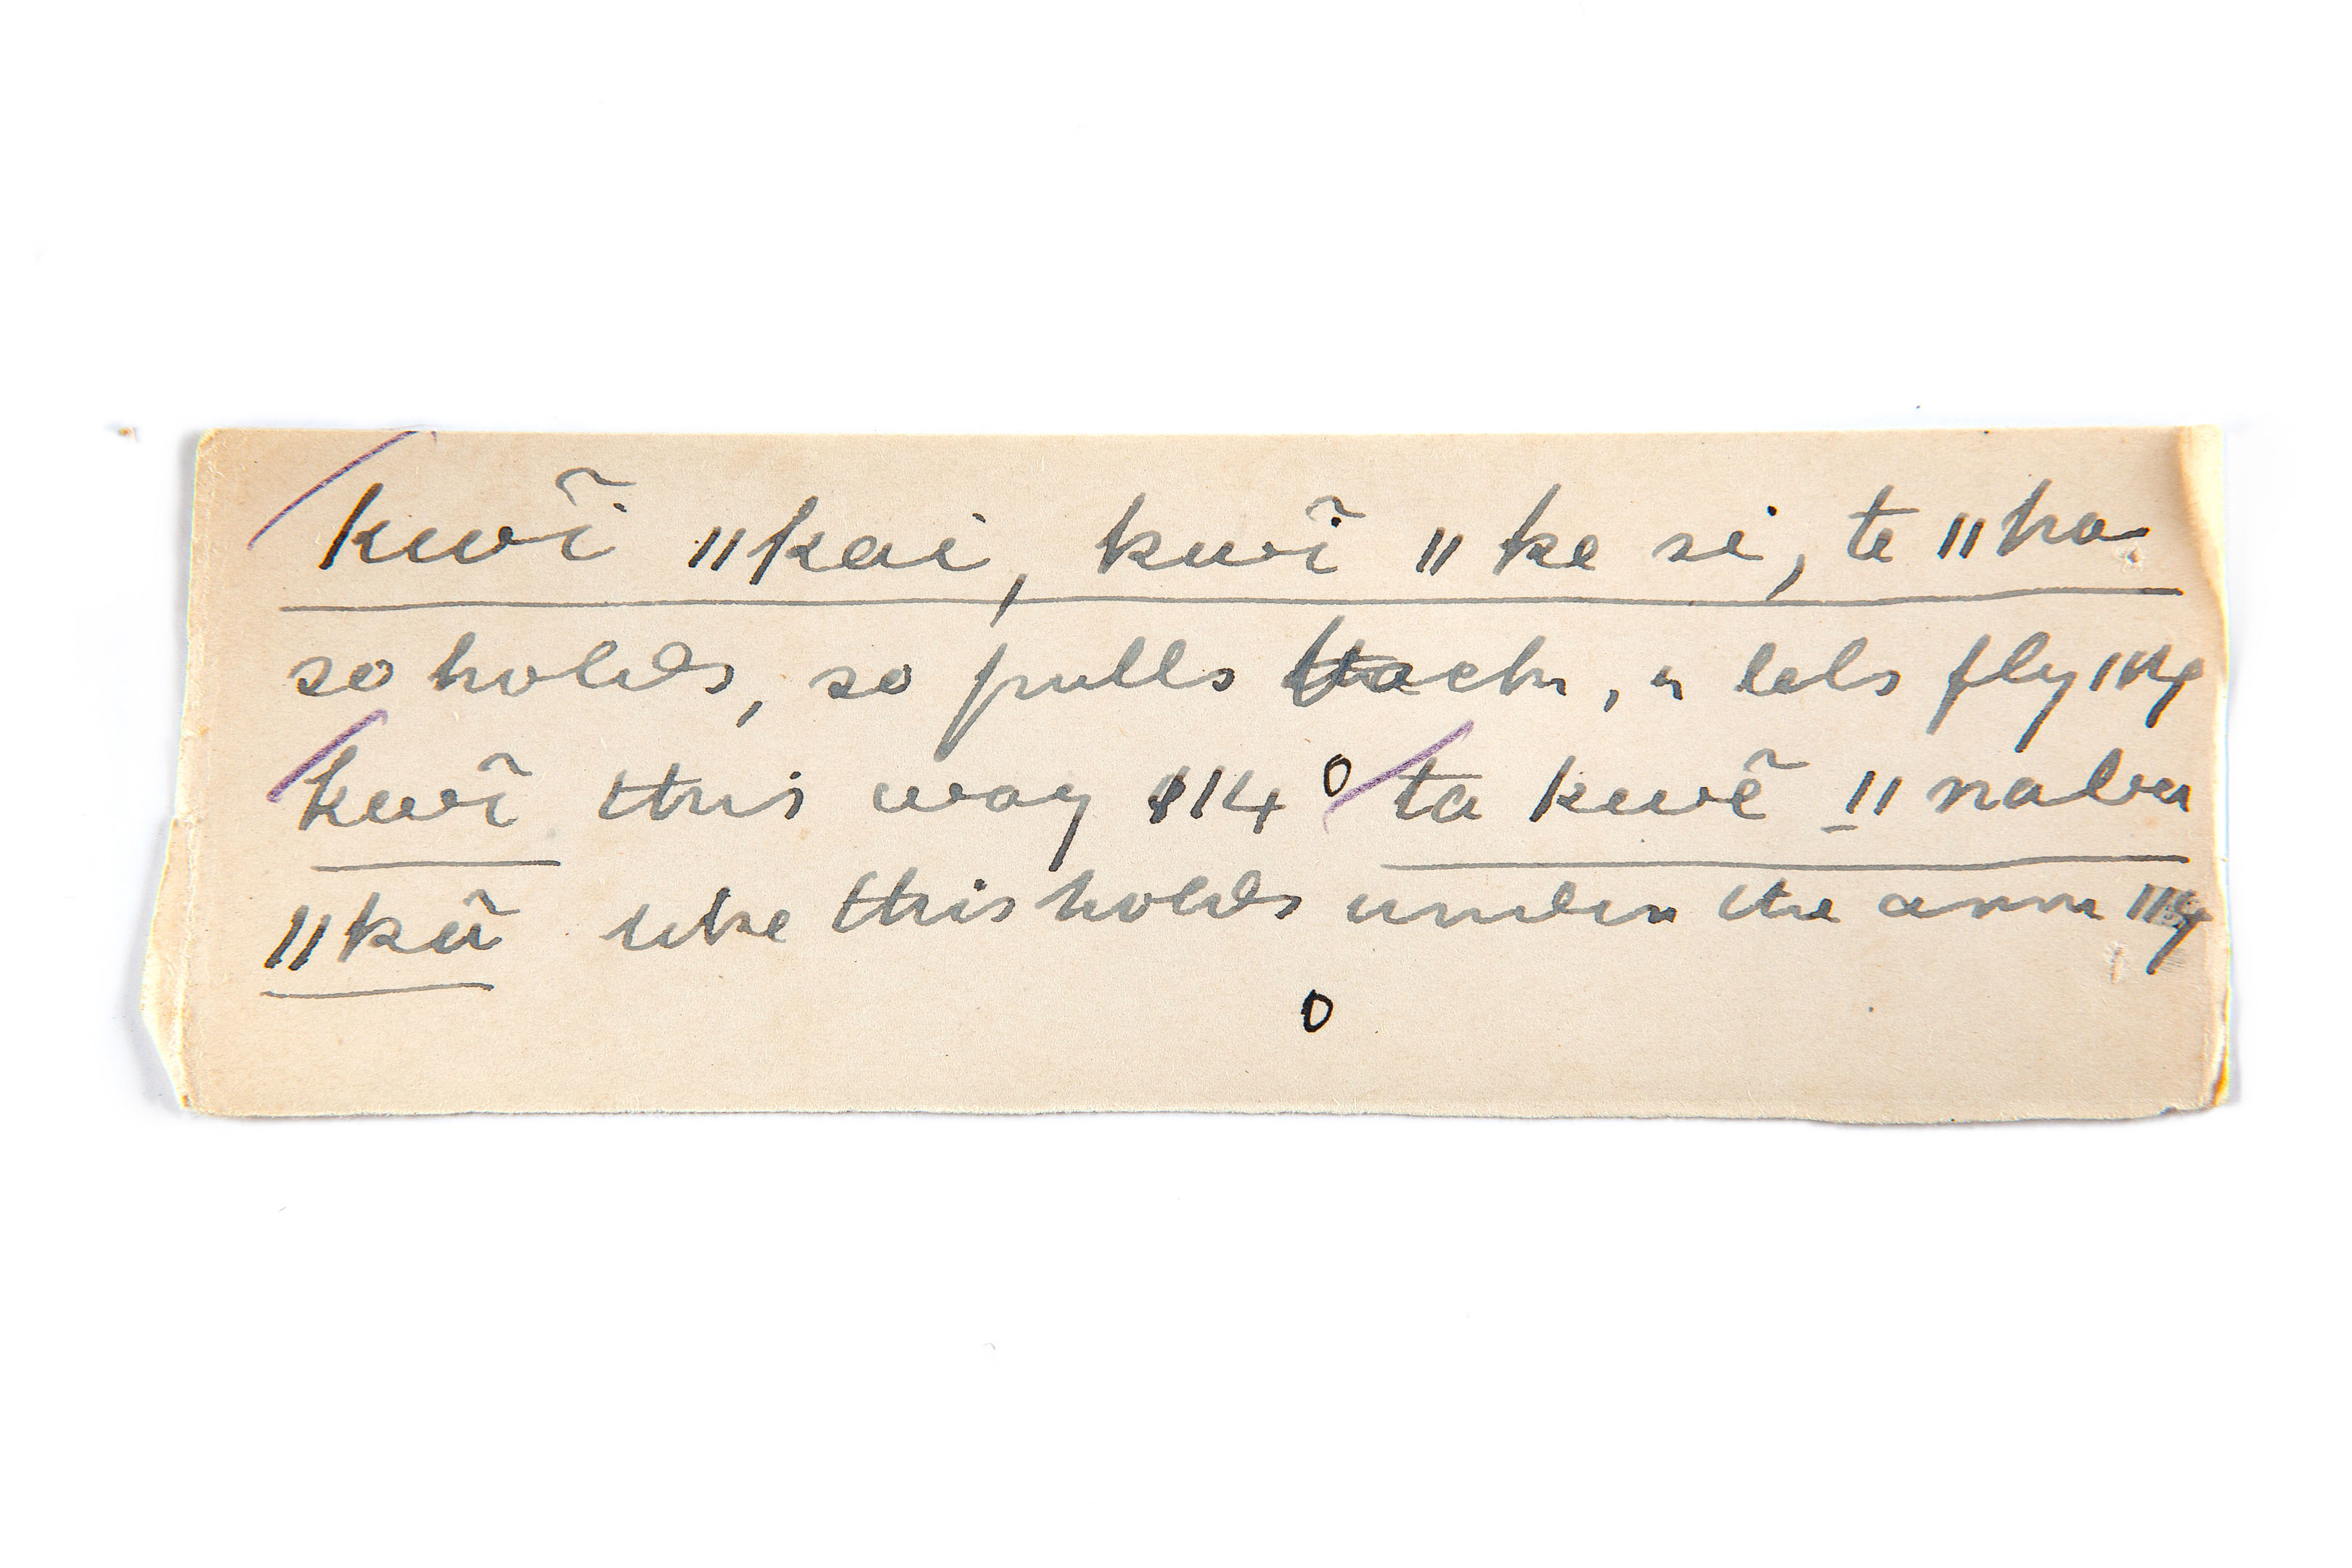 kwĩ ǁkai, kwĩ ǁke si, te ǁho
so holds, so pulls back, " lets fly
kwĩ this way 114 ta kwẽ ǁnabu
ǁkũ like this holds under the arm